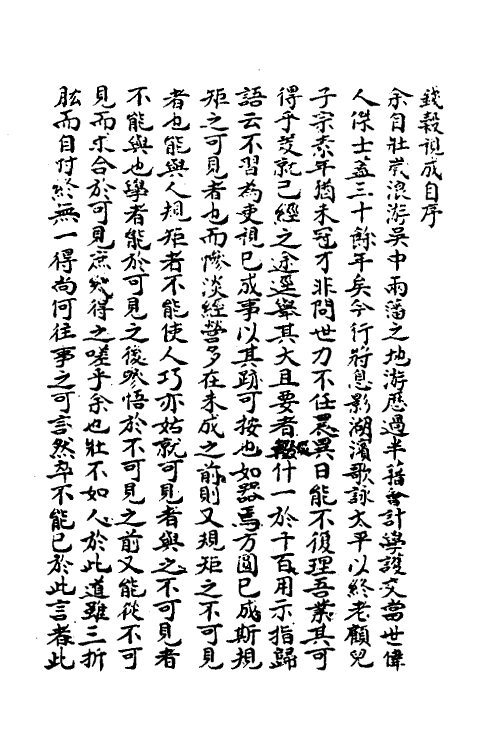 錢穀視成自序
余自壯歲浪游吳中兩藩之地游歷過半藉會計學設交當世偉
人傑士蓋三十餘年矣今行將息影湖濱歌詠太平以終老顧兒
子宗泰年猶未冠才非問世力不任農異日能不復理吾業其可
得乎爰就已經之途逕舉其大且要者什一於千百用示指歸
語云不習為吏視已成事以其跡可按也如器焉方圓已成斯規
矩之可見者也而慘淡經營多在未成之前則又規矩之不可見
者也能與人規矩者不能使人巧亦姑就可見者與之不可見者
不能與也學者能於可見之後默悟於不可見之前又能從不可
見而求合於可見庶幾得之嗟乎余也壯不如人於此道雖三折
肱而自忖終無一得尚何往事之可言然卒不能已於此言者此